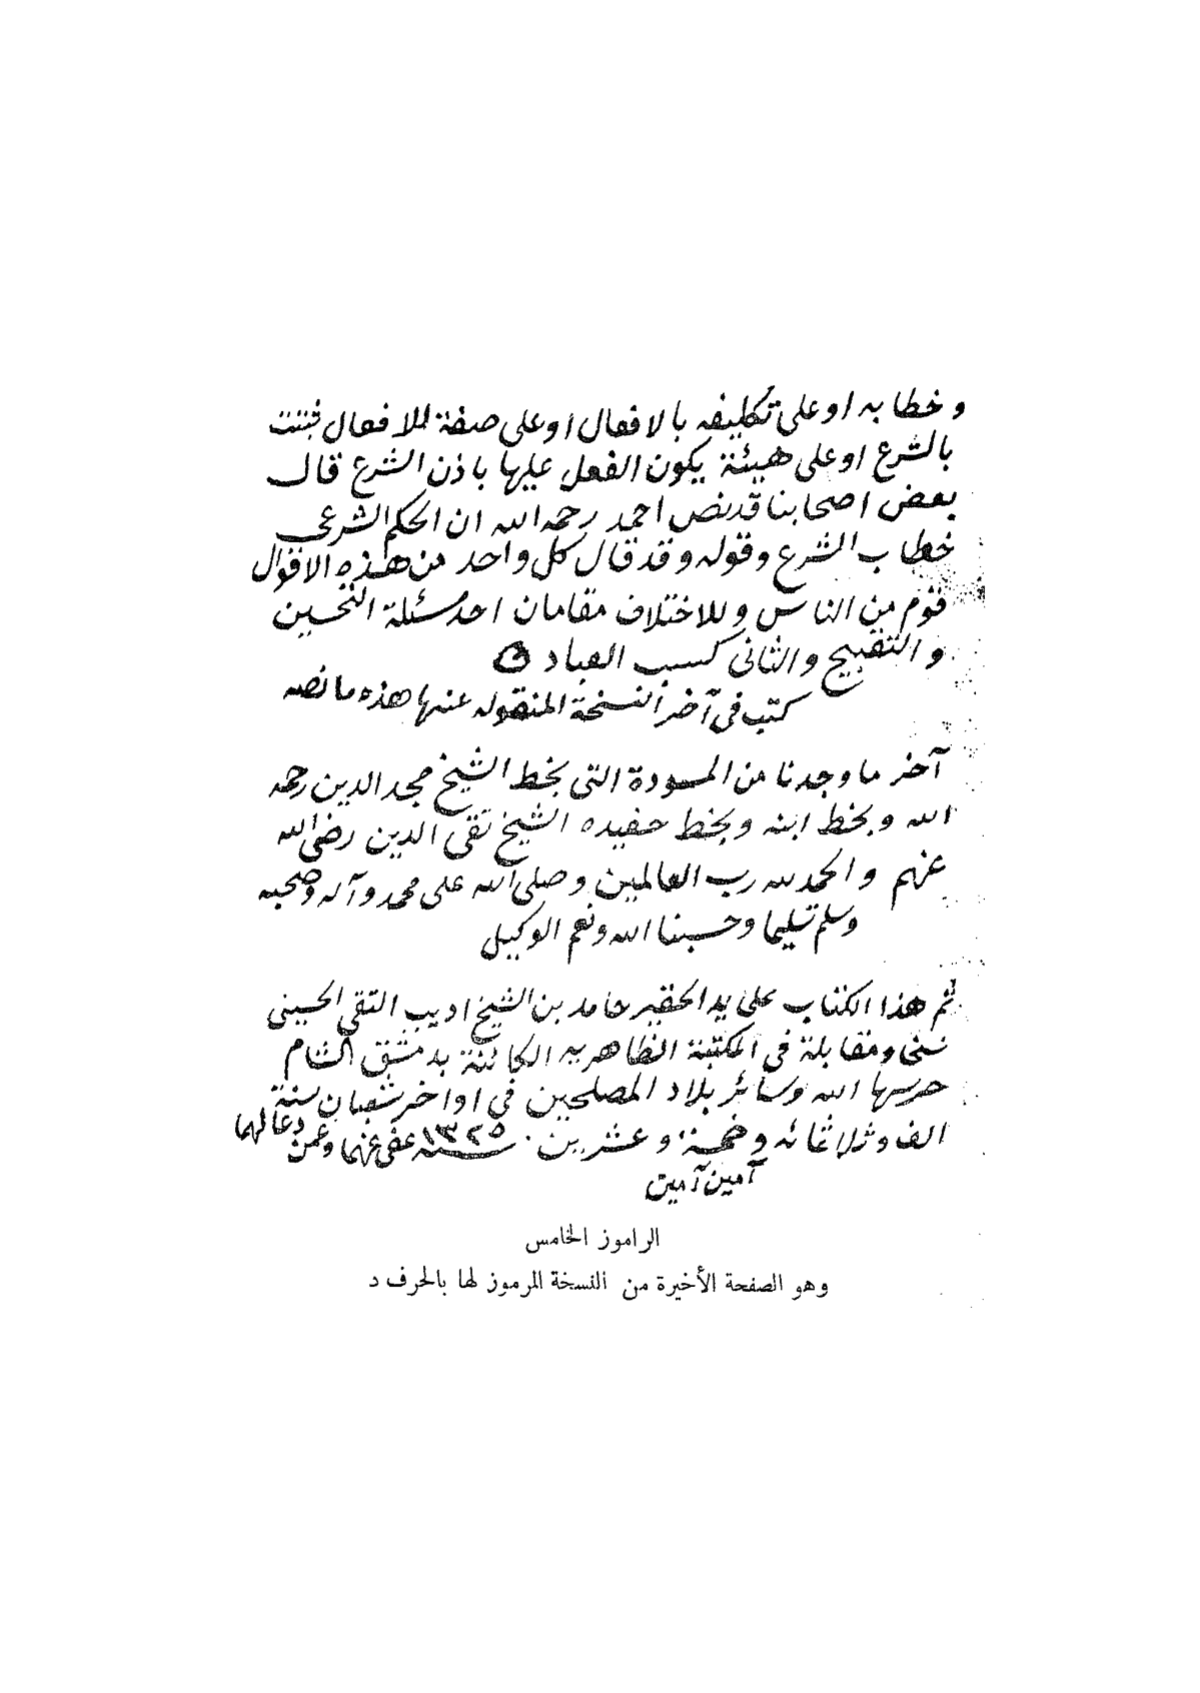 وخطابه او على تكليفه بالافعال او على صفة للافعال ثبتت
بالشرع او على هيئة يكون الفعل عليها باذن الشرع قال
بعض اصحابنا قد نص احمد رحمه الله ان الحكم الشرعى
خطاب الشرع وقوله وقد قال كل واحد من هذه الاقوال
قوم من الناس وللاختلاف مقامان احد مسئلة التحسين
والتقبيح والثانى كسب العباد
كتب فى آخر النسخة المنقوله عنها هذه ما نصه
آخر ما وجدنا من المسودة التى بخط الشيخ مجد الدين رحمه
الله وبخط ابنه وبخط حفيده الشيخ تقى الدين رضى الله
عنهم والحمد لله رب العالمين وصلى الله على محمد وآله وصحبه
وسلم تسليما وحسبنا الله ونعم الوكيل
تم هذا الكتاب على يد الحقير حامد بن الشيخ اديب التقى الحسينى
نسخا ومقابلة فى المكتبة الظاهريه الكائنة بدمشق الشام
حرسها الله وسائر بلاد المصلحين فى اواخر شعبان سنة
الف وثلاثمائه وخمسة وعشرين. سنه ١٣٢٥ عفى عنهما وعمن دعا لهما
آمين آمين
الراموز الخامس
وهو الصفحة الأخيرة من النسخة المرموز لها بالحرف د